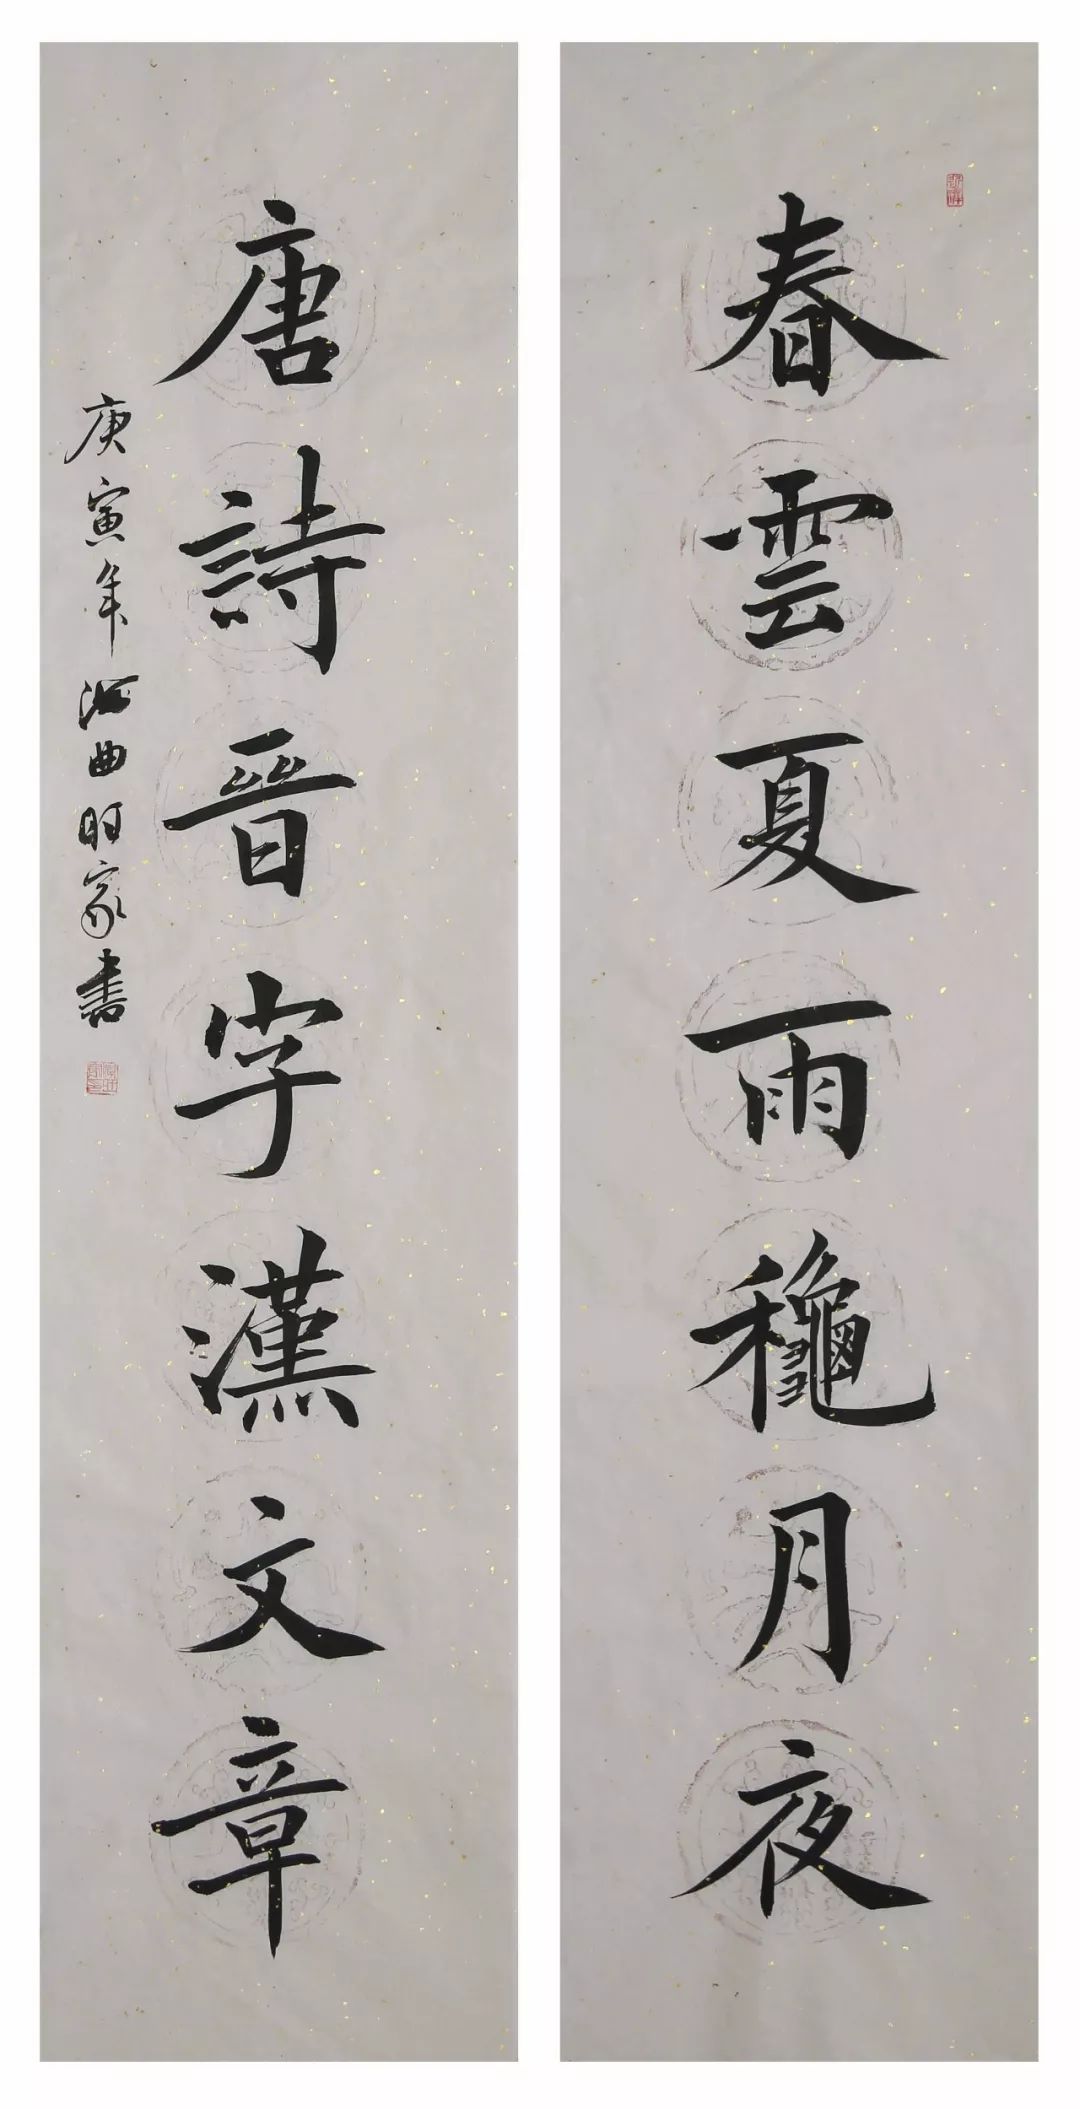 春雲夏雨龝月夜
唐詩晉字漢文章
庚寅年河曲時家書